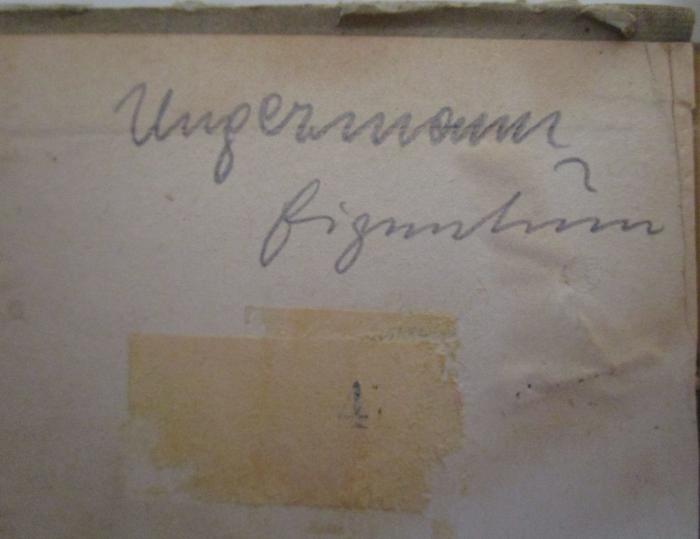 Ungermann
Eigentum